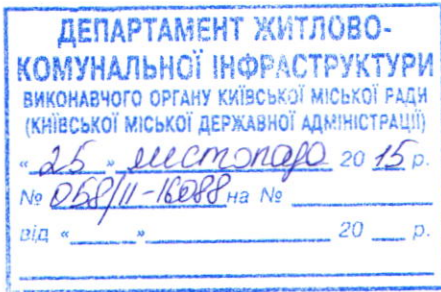 ДЕПАРТАМЕНТ ЖИТЛОВО-
КОМУНАЛЬНОЇ ІНФРАСТРУКТУРИ
ВИКОНАВЧОГО ОРГАНУ КИЇВСЬКОЇ МІСЬКОЇ РАДИ
(КИЇВСЬКОЇ МІСЬКОЇ ДЕРЖАВНОЇ АДМІНІСТРАЦІЇ)
«25» листопада 2015 р.
№ 058/11-16088 на № ______
від «____» ____________ 20 __ р.